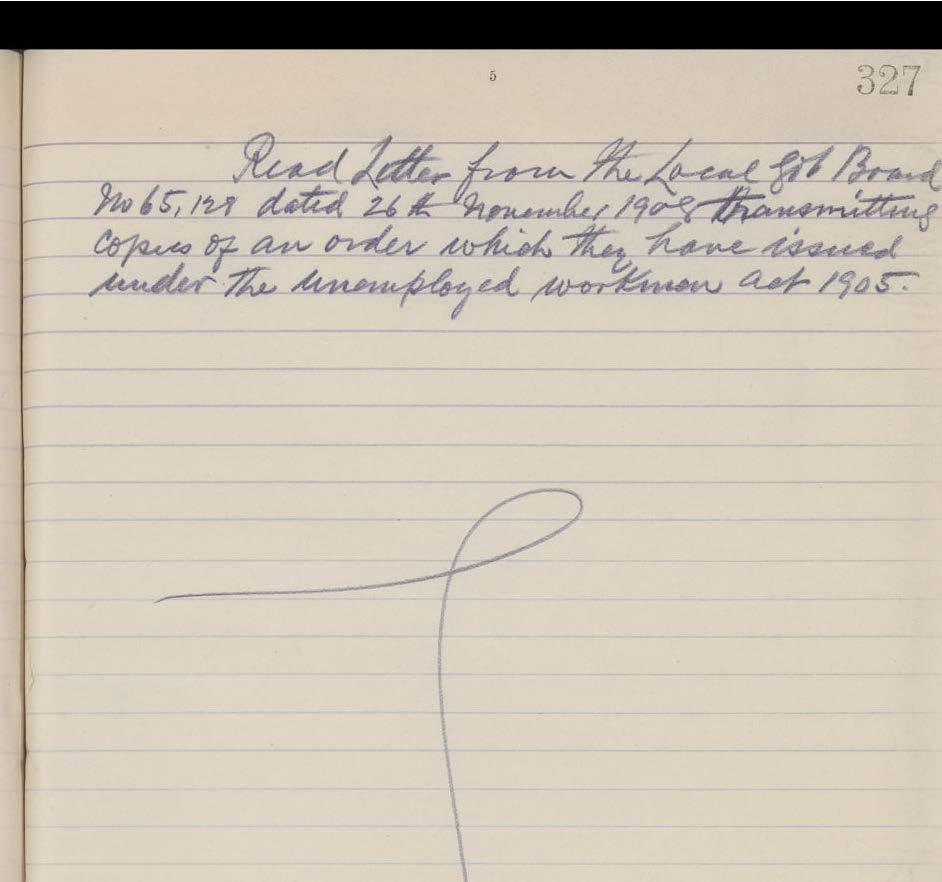 5
327
Read Letter from the Local Gov Board
No 65,128 dated 26th November 1908 transmitting
copies of an order which they have issued
under the unemployed workmen act 1905.